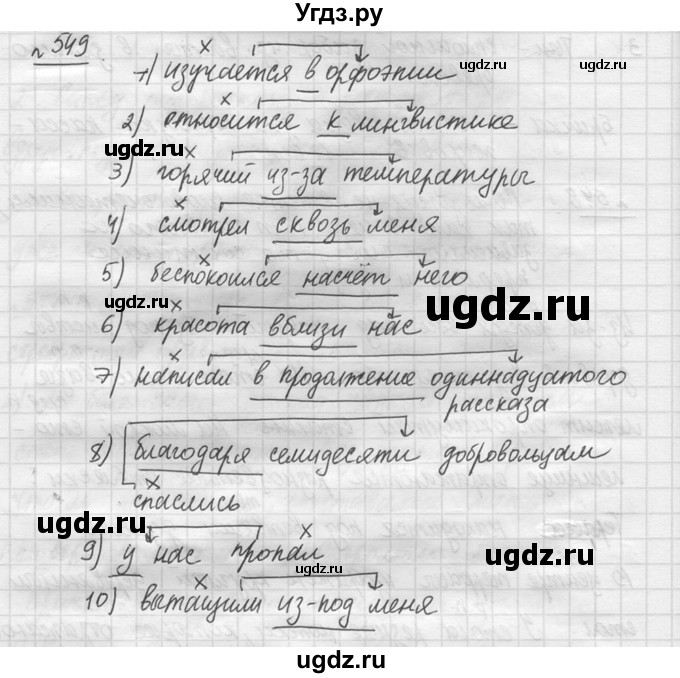 Угдз.ру
№ 549.
1) изучается в орфоэпии
2) относится к лингвистике
3) горячий из-за температуры
4) смотрел сквозь меня
5) беспокоился насчёт него
6) красота вблизи нас
7) написал в продолжение одиннадцатого
рассказа
8) благодаря семидесяти добровольцам
спаслись
9) у нас пропал
10) вытащили из-под меня
ugdz.ru
ugdz.ru
ugdz.ru
ugdz.ru
ugdz.ru
ugdz.ru
ugdz.ru
ugdz.ru
ugdz.ru
ugdz.ru
ugdz.ru
ugdz.ru